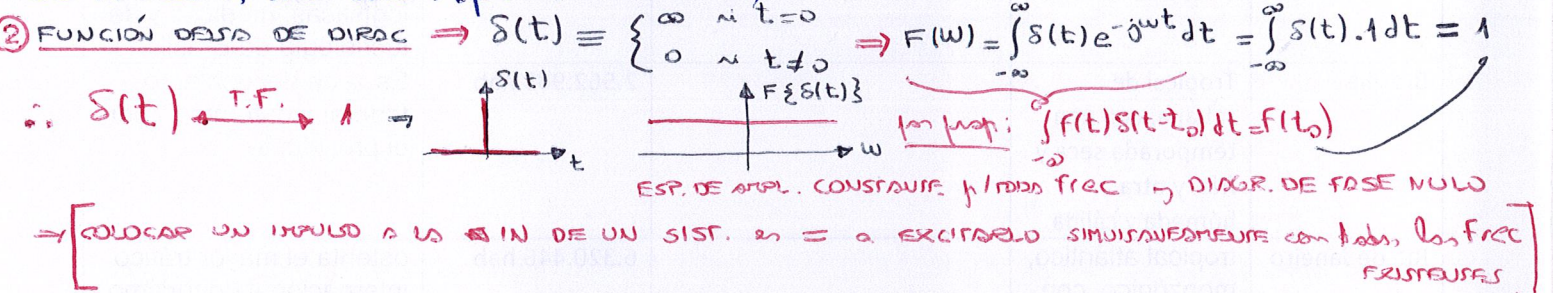 ② FUNCIÓN DELTA DE DIRAC ⇒ δ(t) ≡ { ∞ si t=0 ; 0 si t≠0 ⇒ F(ω) = ∫_{-∞}^{∞} δ(t) e^{-jωt} dt = ∫_{-∞}^{∞} δ(t).1 dt = 1
∴ δ(t) ←T.F.→ 1 → δ(t) t F{δ(t)} ω por prop: ∫_{-∞}^{∞} f(t) δ(t-t₀) dt = f(t₀)
ESP. DE AMPL. CONSTANTE p/TODA frec y DIAGR. DE FASE NULO
⇒ [COLOCAR UN IMPULSO A LA IN DE UN SIST. es = a EXCITARLO SIMULTANEAMENTE con todas las frec
EXISTENTES]